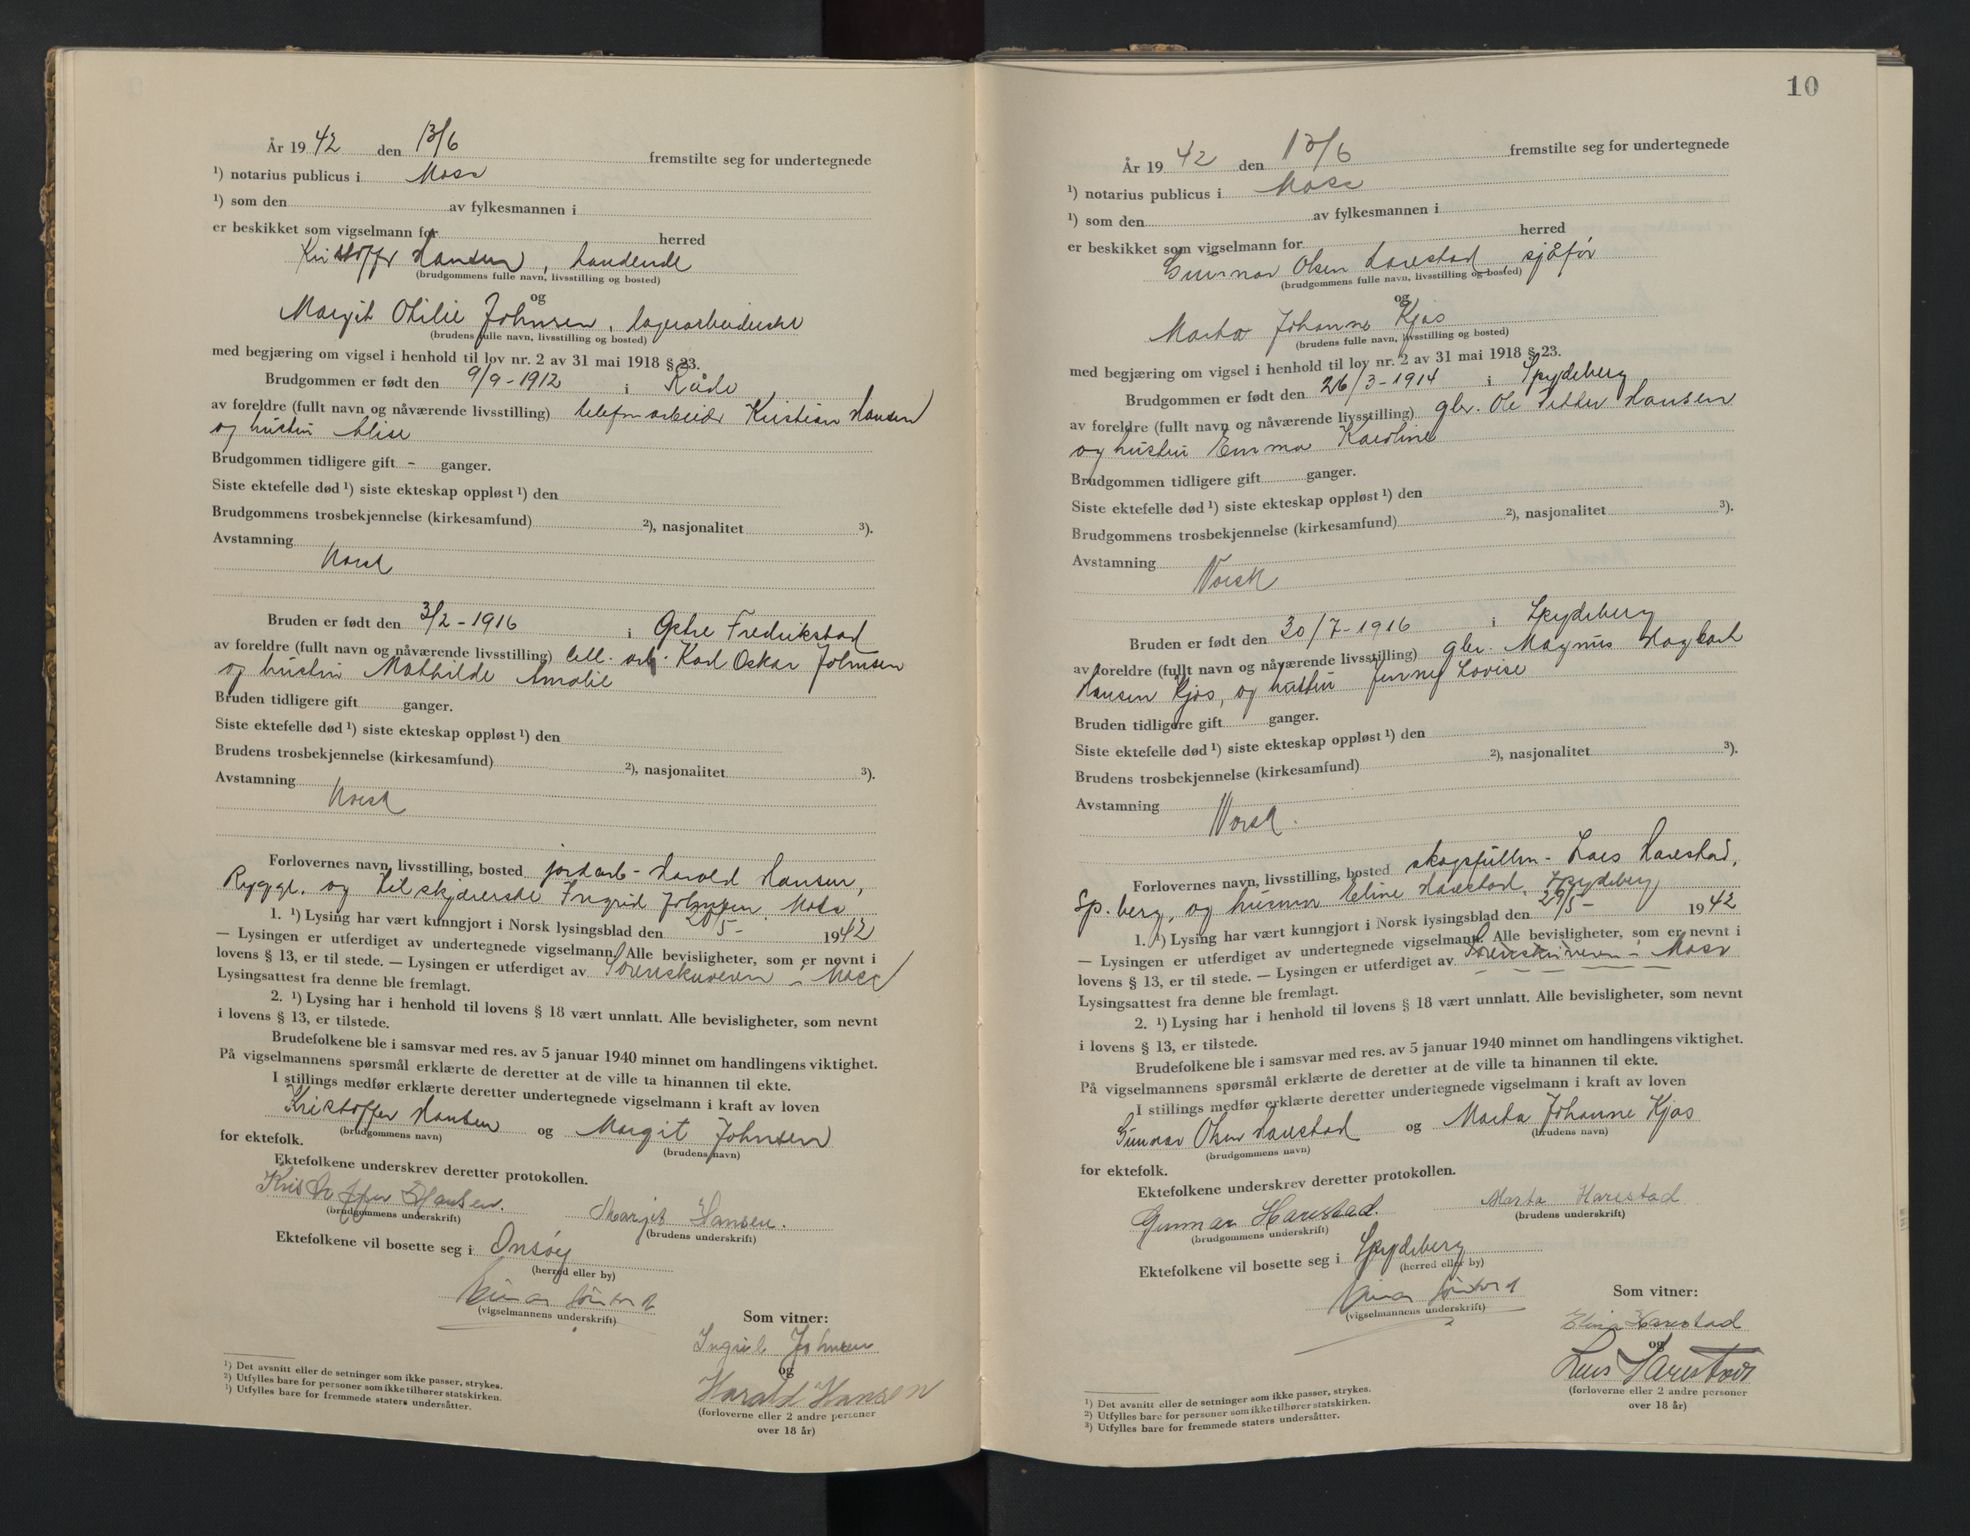 År 1942 den 13/6 fremstilte seg for undertegnede
¹) notarius publicus i Moss
¹) som den av fylkesmannen i
er beskikket som vigselmann for herred
Kristoffer Hansen,
(brudgommens fulle navn, livsstilling og bosted)
og
Margit Otilie Johnsen, lagerarbeiderske
(brudens fulle navn, livsstilling og bosted)
med begjæring om vigsel i henhold til lov nr. 2 av 31 mai 1918 § 23.
Brudgommen er født den 9/9-1912 i Råde
av foreldre (fullt navn og nåværende livsstilling) telefonarbeider Kristian Hansen
og hustru Alise
Brudgommen tidligere gift - ganger.
Siste ektefelle død ¹) siste ekteskap oppløst ¹) den
Brudgommens trosbekjennelse (kirkesamfund) ²), nasjonalitet ³).
Avstamning
Norsk
Bruden er født den 3/2-1916 i Østre Fredrikstad
av foreldre (fullt navn og nåværende livsstilling) cell. arb. Karl Oskar Johnsen
og hustru Mathilde Amalie
Bruden tidligere gift ganger.
Siste ektefelle død ¹) siste ekteskap oppløst ¹) den
Brudens trosbekjennelse (kirkesamfund) ²), nasjonalitet ³).
Avstamning
Norsk
Forlovernes navn, livsstilling, bosted jordarb- Harald Hansen,
Rygge. og tilskjærerske Ingrid Johnsen, Moss
1. ¹) Lysing har vært kunngjort i Norsk lysingsblad den 20/5- 1942
— Lysingen er utferdiget av undertegnede vigselmann. Alle bevisligheter, som er nevnt i
lovens § 13, er til stede. — Lysingen er utferdiget av Sorenskriveren i Moss
Lysingsattest fra denne ble fremlagt.
2. ¹) Lysing har i henhold til lovens § 18 vært unnlatt. Alle bevisligheter, som nevnt
i lovens § 13, er tilstede.
Brudefolkene ble i samsvar med res. av 5 januar 1940 minnet om handlingens viktighet.
På vigselmannens spørsmål erklærte de deretter at de ville ta hinannen til ekte.
I stillings medfør erklærte deretter undertegnede vigselmann i kraft av loven
Kristoffer Hansen og Margit Johnsen
(brudgommens navn) (brudens navn)
for ektefolk.
Ektefolkene underskrev deretter protokollen.
Kristoffer Hansen. Margit Hansen.
(brudgommens underskrift) (brudens underskrift)
Ektefolkene vil bosette seg i Onsøy
(herred eller by)
(vigselmannens underskrift)
Som vitner:
Ingrid Johnsen
og
Harald Hansen
(forloverne eller 2 andre personer
over 18 år)
¹) Det avsnitt eller de setninger som ikke passer, strykes.
²) Utfylles bare for personer som ikke tilhører statskirken.
³) Utfylles bare for fremmede staters undersåtter.
10
År 1942 den 13/6 fremstilte seg for undertegnede
¹) notarius publicus i Moss
¹) som den av fylkesmannen i
er beskikket som vigselmann for herred
Gunnar Olsen Harestad, sjåfør
(brudgommens fulle navn, livsstilling og bosted)
og
Marta Johanne Kjos
(brudens fulle navn, livsstilling og bosted)
med begjæring om vigsel i henhold til lov nr. 2 av 31 mai 1918 § 23.
Brudgommen er født den 26/3-1914 i Spydeberg
av foreldre (fullt navn og nåværende livsstilling) gbr. Ole Hansen
og hustru Emma Karoline
Brudgommen tidligere gift ganger.
Siste ektefelle død ¹) siste ekteskap oppløst ¹) den
Brudgommens trosbekjennelse (kirkesamfund) ²), nasjonalitet ³).
Avstamning
Norsk
Bruden er født den 30/7-1916 i Spydeberg
av foreldre (fullt navn og nåværende livsstilling) gbr. Magnus Hagbart
Hansen Kjos, og hustru Jenny Lovise
Bruden tidligere gift ganger.
Siste ektefelle død ¹) siste ekteskap oppløst ¹) den
Brudens trosbekjennelse (kirkesamfund) ²), nasjonalitet ³).
Avstamning
Norsk.
Forlovernes navn, livsstilling, bosted Lars Harestad,
Sp.berg, og Eline Harestad, Spydeberg
1. ¹) Lysing har vært kunngjort i Norsk lysingsblad den 29/5- 1942
— Lysingen er utferdiget av undertegnede vigselmann. Alle bevisligheter, som er nevnt i
lovens § 13, er til stede. — Lysingen er utferdiget av Sorenskriveren i Moss
Lysingsattest fra denne ble fremlagt.
2. ¹) Lysing har i henhold til lovens § 18 vært unnlatt. Alle bevisligheter, som nevnt
i lovens § 13, er tilstede.
Brudefolkene ble i samsvar med res. av 5 januar 1940 minnet om handlingens viktighet.
På vigselmannens spørsmål erklærte de deretter at de ville ta hinannen til ekte.
I stillings medfør erklærte deretter undertegnede vigselmann i kraft av loven
Gunnar Olsen Harestad og Marta Johanne Kjos
(brudgommens navn) (brudens navn)
for ektefolk.
Ektefolkene underskrev deretter protokollen.
Gunnar Harestad. Marta Harestad
(brudgommens underskrift) (brudens underskrift)
Ektefolkene vil bosette seg i Spydeberg
(herred eller by)
(vigselmannens underskrift)
Som vitner:
Harestad
og
Lars Harestad
(forloverne eller 2 andre personer
over 18 år)
¹) Det avsnitt eller de setninger som ikke passer, strykes.
²) Utfylles bare for personer som ikke tilhører statskirken.
³) Utfylles bare for fremmede staters undersåtter.